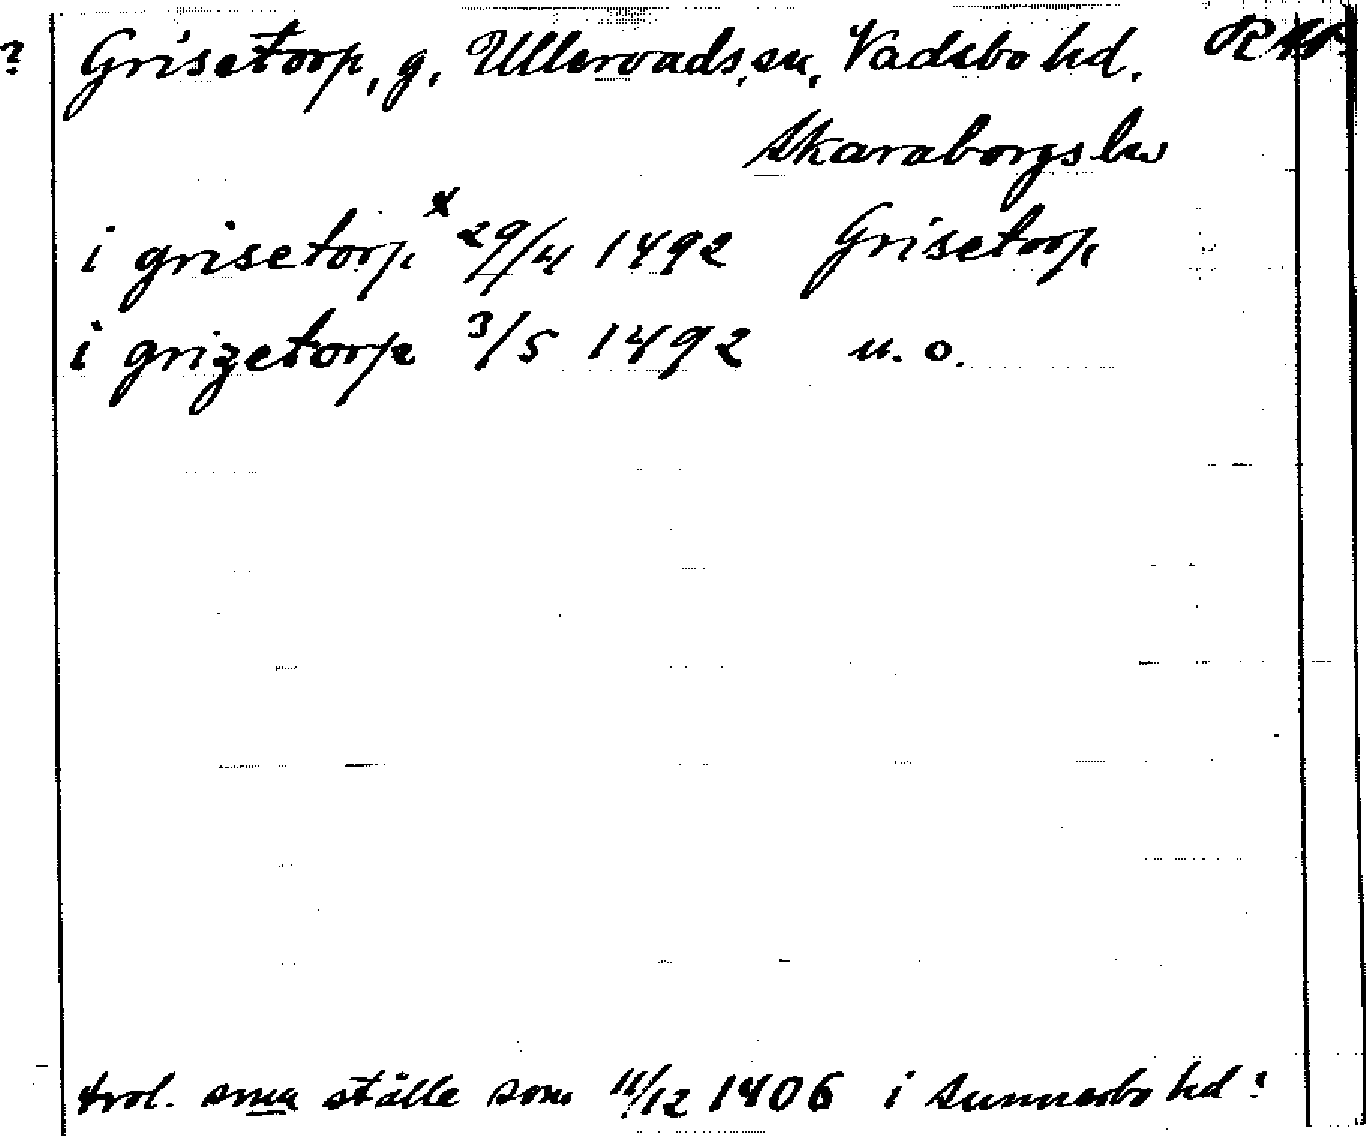 ? Grisetorp, g. Ullervads sn, Vadsbo hd.
Skaraborgs län
i grisetorp x 29/4 1492 Grisetorp
i grizetorp 3/5 1492 u. o.
trol. sma ställe som 11/12 1406 i Sunnerbo hd?